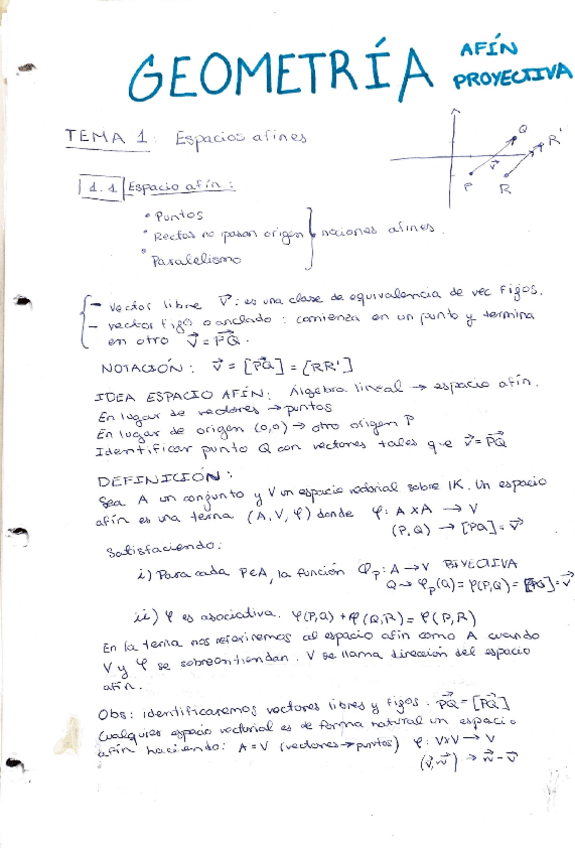 GEOMETRÍA AFÍN
PROYECTIVA
TEMA 1: Espacios afines
Q
R'
v⃗
P
R
1.1 Espacio afín:
• Puntos
• Rectas no pasan origen } nociones afines.
• Paralelismo
- Vector libre v⃗: es una clase de equivalencia de vec figos.
- vector figo o anclado: comienza en un punto y termina
en otro v⃗ = PQ⃗.
NOTACIÓN: v⃗ = [PQ⃗] = [RR']
IDEA ESPACIO AFÍN: Álgebra lineal → espacio afín.
En lugar de vectores → puntos
En lugar de origen (0,0) → otro origen P
Identificar punto Q con vectores tales que v⃗ = PQ⃗
DEFINICIÓN:
Sea A un conjunto y V un espacio vectorial sobre IK. Un espacio
afín es una terna (A, V, φ) donde φ: A x A → V
(P, Q) → [PQ] = v⃗
Satisfaciendo:
i) Para cada P∈A, la función φ_P: A → V BIYECTIVA
Q → φ_P(Q) = φ(P,Q) = [PQ] = v⃗
ii) φ es asociativa. φ(P,Q) + φ(Q,R) = φ(P,R)
En la terna nos referiremos al espacio afín como A cuando
V y φ se sobreentiendan. V se llama dirección del espacio
afín.
Obs: identificaremos vectores libres y figos. PQ⃗ = [PQ⃗]
Cualquier espacio vectorial es de forma natural un espacio
afín haciendo: A = V (vectores → puntos) φ: V x V → V
(v⃗, w⃗) → w⃗ - v⃗